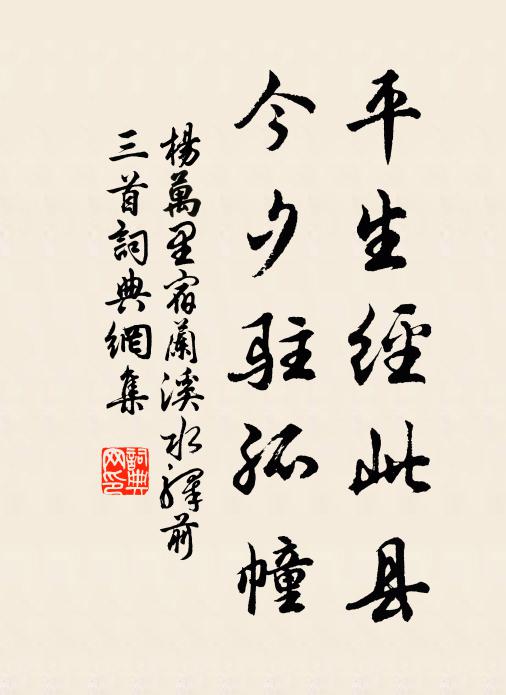 平生經此县
今夕駐孤幢
楊萬里宿蘭溪水驛前
三首詞典網集
詞典
网印